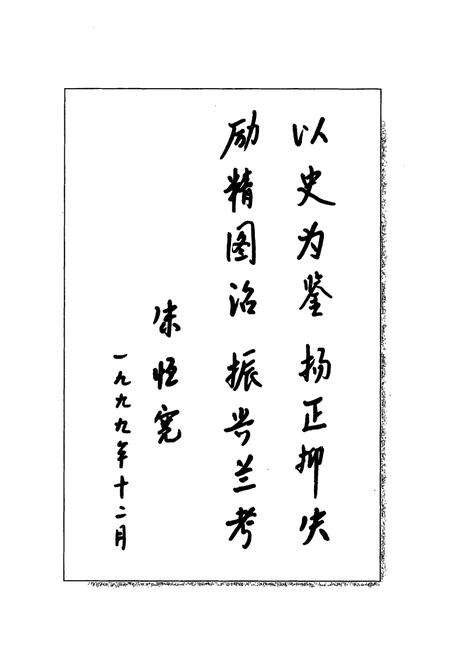 以史为鉴 扬正抑失
励精图治 振兴兰考
朱恒宽
一九九九年十二月